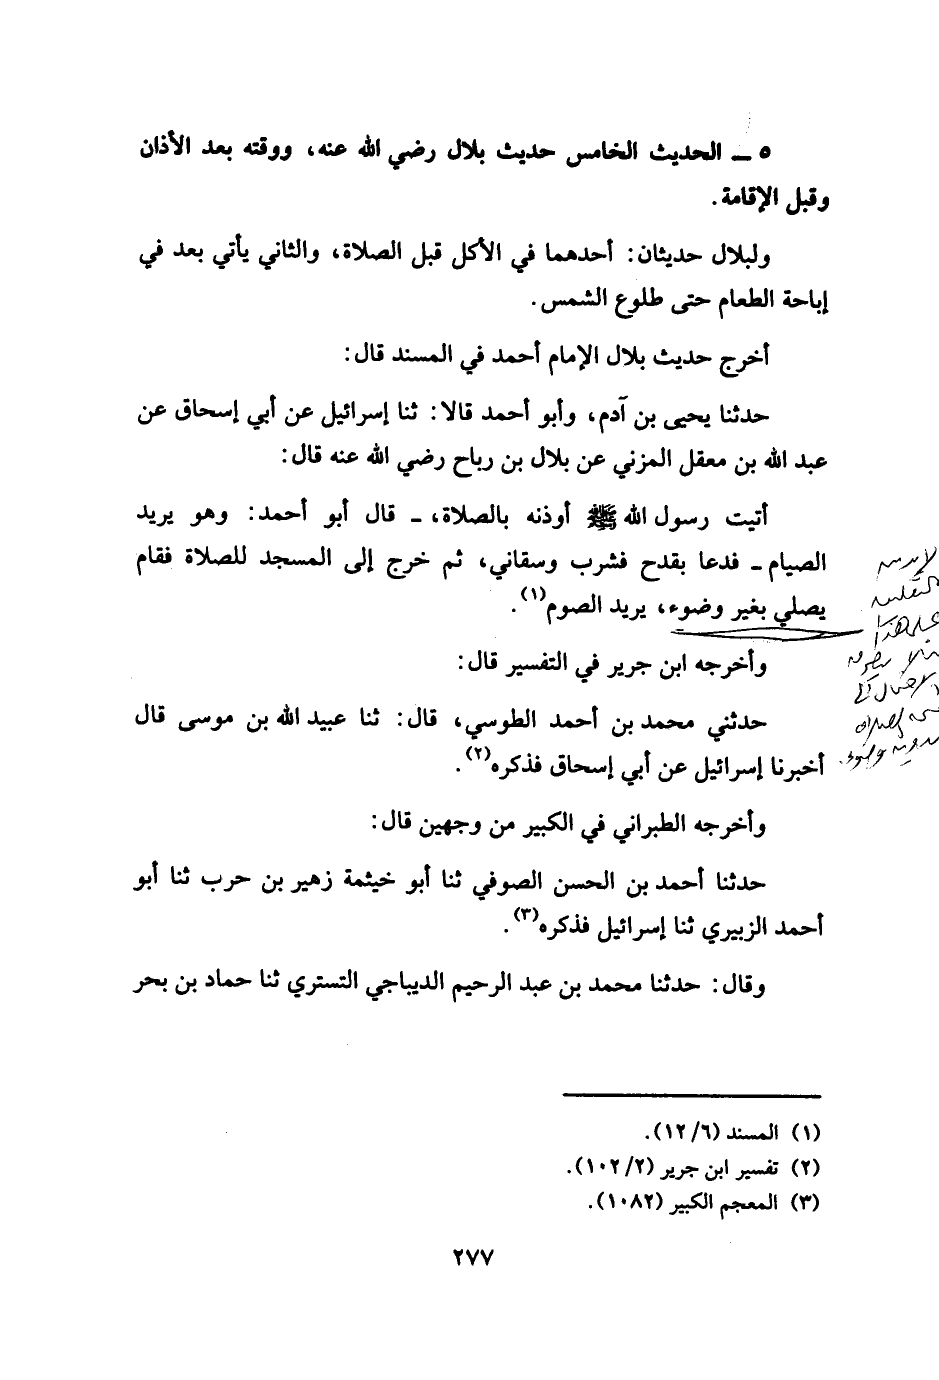 ٥ ــ الحديث الخامس حديث بلال رضي الله عنه، ووقته بعد الأذان
وقبل الإقامة.
ولبلال حديثان: أحدهما في الأكل قبل الصلاة، والثاني يأتي بعد في
إباحة الطعام حتى طلوع الشمس.
أخرج حديث بلال الإمام أحمد في المسند قال:
حدثنا يحيى بن آدم، وأبو أحمد قالا: ثنا إسرائيل عن أبي إسحاق عن
عبد الله بن معقل المزني عن بلال بن رباح رضي الله عنه قال:
أتيت رسول الله ﷺ أوذنه بالصلاة، ـ قال أبو أحمد: وهو يريد
الصيام ـ فدعا بقدح فشرب وسقاني، ثم خرج إلى المسجد للصلاة فقام
يصلي بغير وضوء، يريد الصوم(١).
وأخرجه ابن جرير في التفسير قال:
حدثني محمد بن أحمد الطوسي، قال: ثنا عبيد الله بن موسى قال
أخبرنا إسرائيل عن أبي إسحاق فذكره(٢).
وأخرجه الطبراني في الكبير من وجهين قال:
حدثنا أحمد بن الحسن الصوفي ثنا أبو خيثمة زهير بن حرب ثنا أبو
أحمد الزبيري ثنا إسرائيل فذكره(٣).
وقال: حدثنا محمد بن عبد الرحيم الديباجي التستري ثنا حماد بن بحر
(١) المسند (١٢/٦).
(٢) تفسير ابن جرير (١٠٢/٢).
(٣) المعجم الكبير (١٠٨٢).
٢٧٧